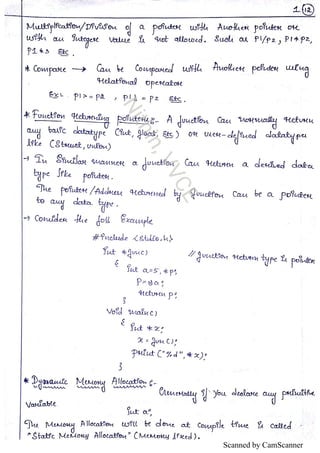 1 (12)
Multiplication/Division of a pointer with Another pointer or
with an Integer value is not allowed. Such as P1/P2, P1*P2,
P1*3 Etc.
* Compare → Can be Compared with Another pointer using
relational operator
Ex:- P1>=P2 , P1!=P2 Etc.
* Function Returning pointers:- A function can normally return
any basic datatype (int, float, Etc) or user-defined datatype
like (struct, union)
→ In Similar manner a function Can return a derived data
type like pointer.
The pointer/Address returned by function Can be a pointer
to any data type.
→ Consider the foll Example
#include <stdio.h>
int *func() // function return type is pointer
{ int a=5, *p;
p=&a;
return p;
}
void main()
{ int *x;
x = func();
printf("%d", *x);
}
* Dynamic Memory Allocation:-
Generally if you declare any primitive
Variable
int a;
The Memory Allocation will be done at Compile time is called
"Static Memory Allocation" (Memory fixed).
Scanned by CamScanner